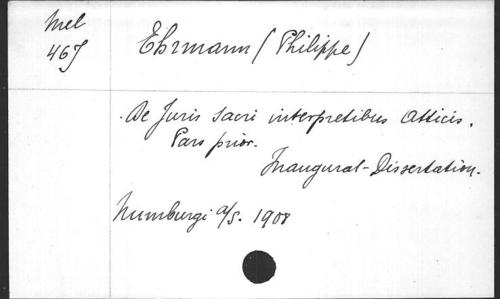 Mel
465
Ehrmann (Philippe)
De Juris sacri interpretibus Atticis.
Pars prior.
Inaugural-Dissertation.
Numburgi a/S. 1908